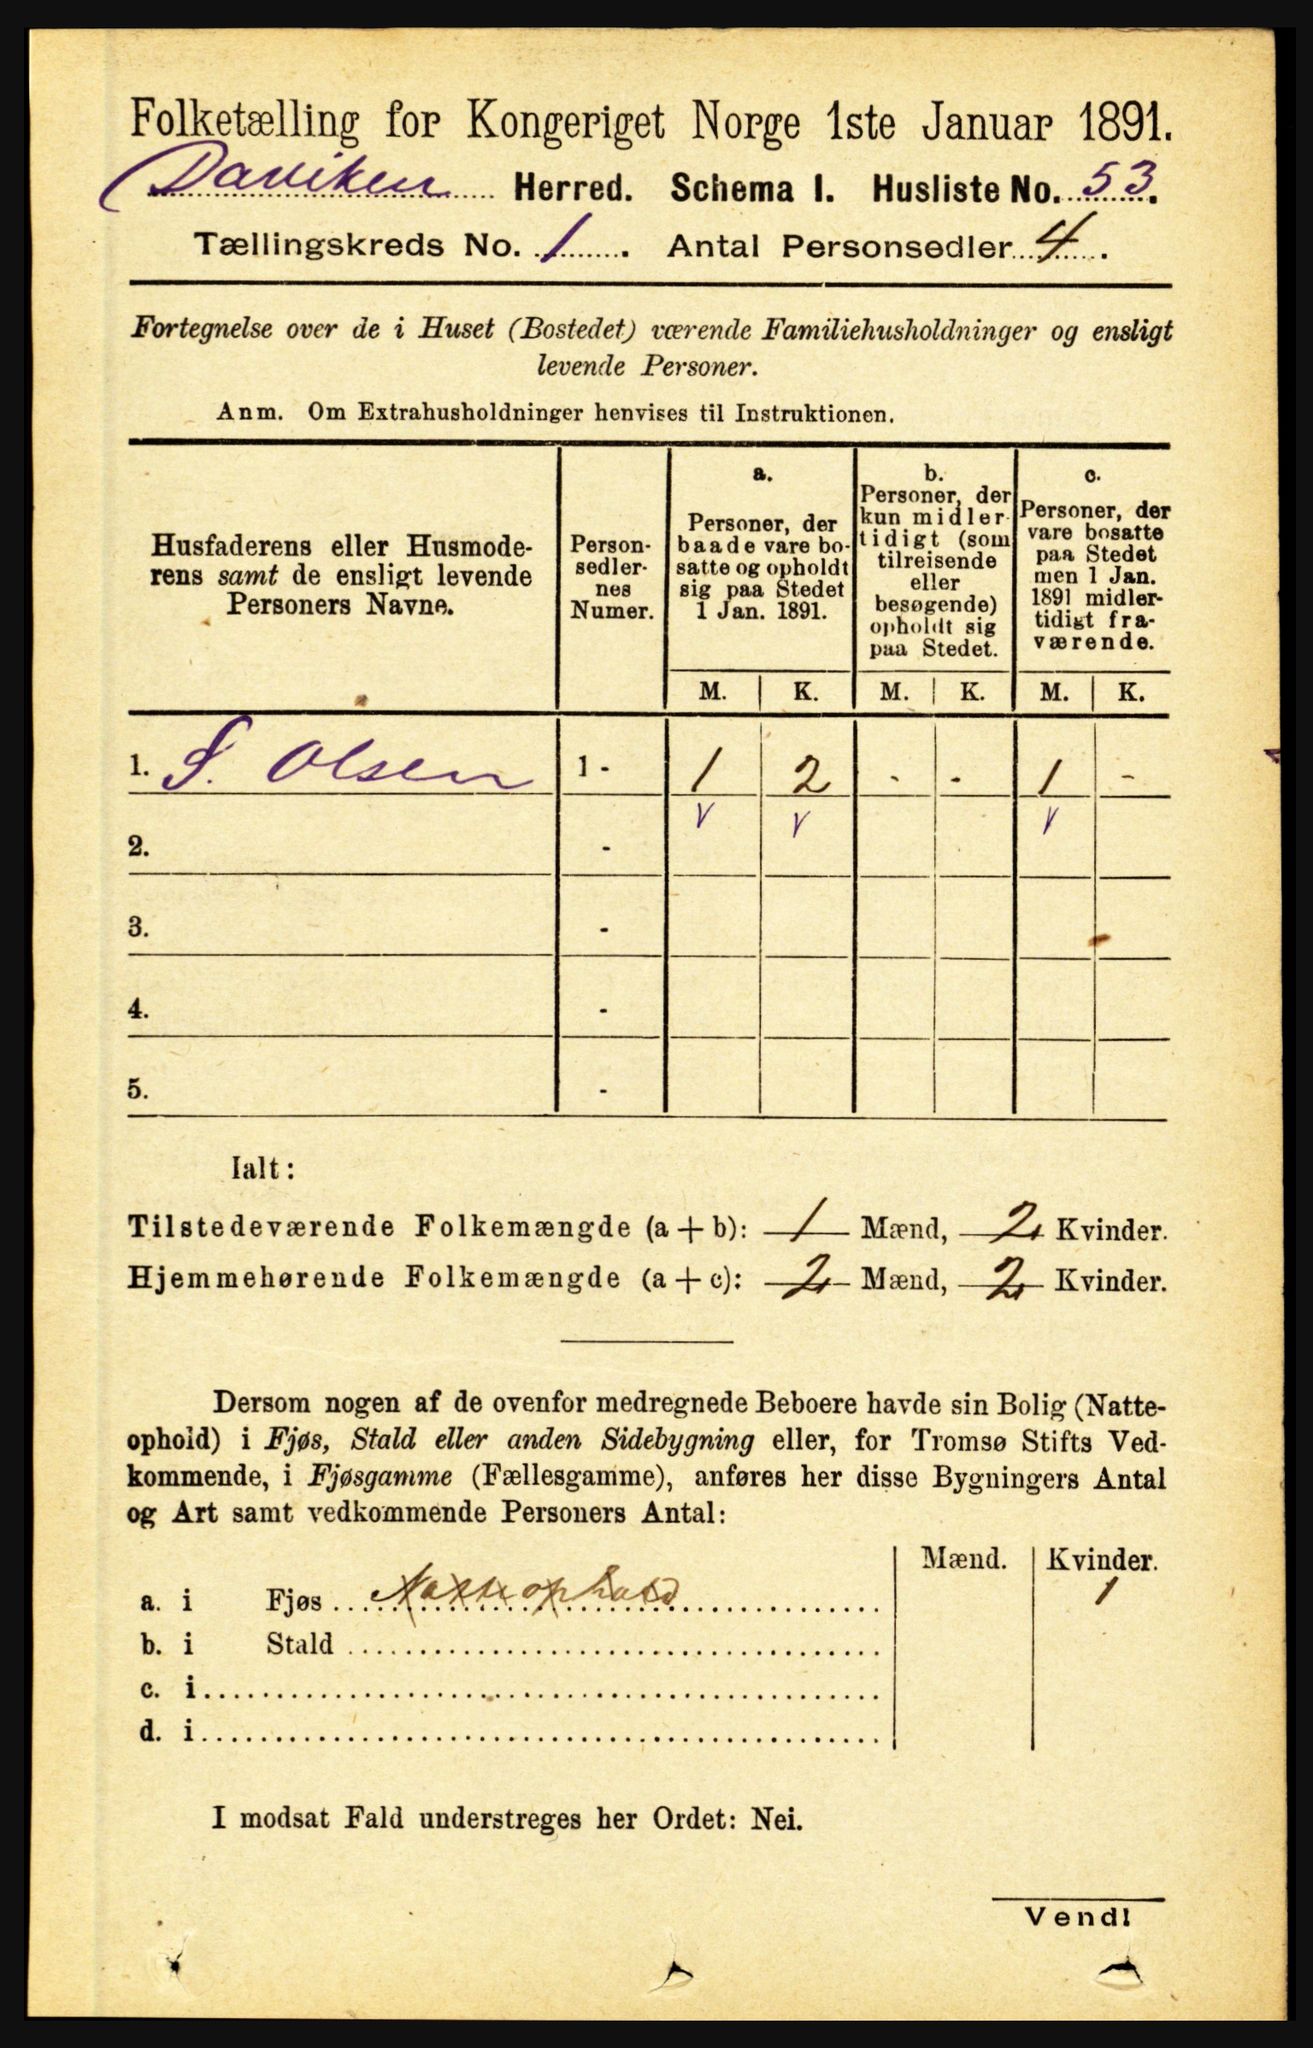 Folketælling for Kongeriget Norge 1ste Januar 1891.
Daviken Herred. Schema I. Husliste No. 53.
Tællingskreds No. 1. Antal Personsedler 4.
Fortegnelse over de i Huset (Bostedet) værende Familiehusholdninger og ensligt
levende Personer.
Anm. Om Extrahusholdninger henvises til Instruktionen.
Husfaderens eller Husmode-
rens samt de ensligt levende
Personers Navne.
Person-
sedler-
nes
Numer.
a.
Personer, der
baade vare bo-
satte og opholdt
sig paa Stedet
1 Jan. 1891.
b.
Personer, der
kun midler-
tidigt (som
tilreisende
eller
besøgende)
opholdt sig
paa Stedet.
c.
Personer, der
vare bosatte
paa Stedet
men 1 Jan.
1891 midler-
tidigt fra-
værende.
M. K. M. K. M. K.
1. S. Olsen 1 - 1 2 - - 1 -
v v v
2. -
3. -
4. -
5. -
Ialt:
Tilstedeværende Folkemængde (a + b): 1 Mænd, 2 Kvinder.
Hjemmehørende Folkemængde (a + c): 2 Mænd, 2 Kvinder.
Dersom nogen af de ovenfor medregnede Beboere havde sin Bolig (Natte-
ophold) i Fjøs, Stald eller anden Sidebygning eller, for Tromsø Stifts Ved-
kommende, i Fjøsgamme (Fællesgamme), anføres her disse Bygningers Antal
og Art samt vedkommende Personers Antal:
Mænd. Kvinder.
a. i Fjøs Natteophold 1
b. i Stald
c. i
d. i
I modsat Fald understreges her Ordet: Nei.
Vend!